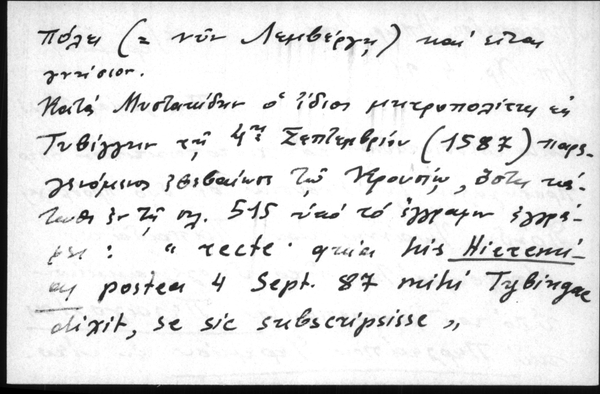 πόλει (= νῦν Λεμβέργη) καί εἶναι
γνήσιον.
Κατά Μυστακίδην ὁ ἴδιος μητροπολίτης ἐν
Τυβίγγῃ τῇ 4ῃ Σεπτεμβρίου (1587) παρε-
γενόμενος ἐβεβαίωσε τῷ Κρουσίῳ, ὅστις κά-
τωθι ἐν τῇ σελ. 515 ὑπό τό ἔγγραφον ἐγγρά-
φει: "recte quia his Hieremi-
as postea 4 Sept. 87 mihi Tybingae
dixit, se sic subscripsisse"